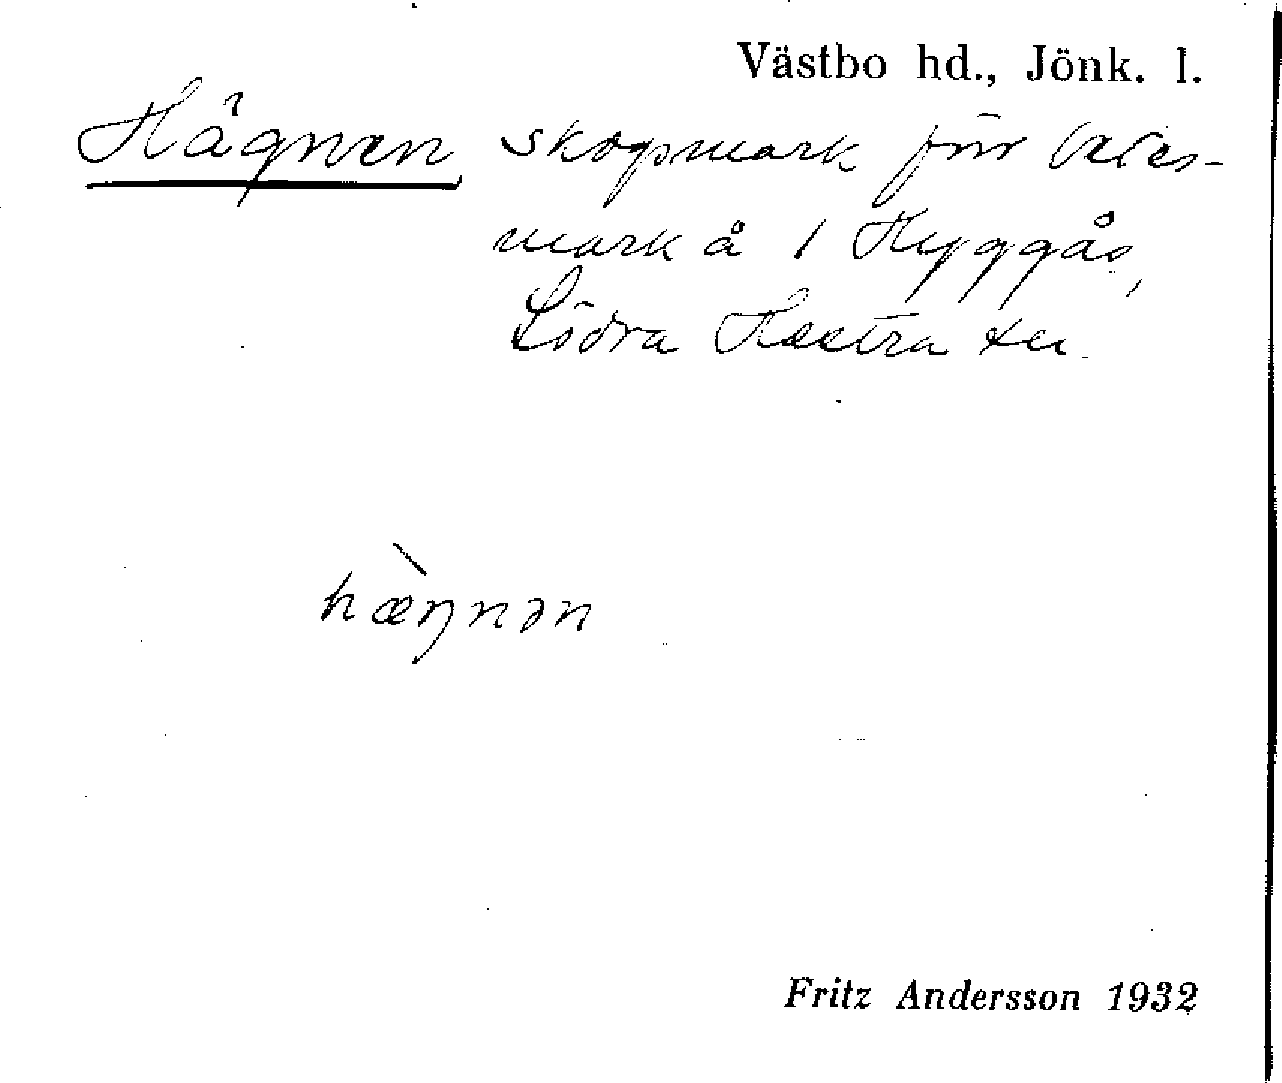 Västbo hd., Jönk. l.
Hägnen skogsmark förr betes-
mark å 1 Hyggås,
Södra Hestra sn
hæ̀ŋnən
Fritz Andersson 1932